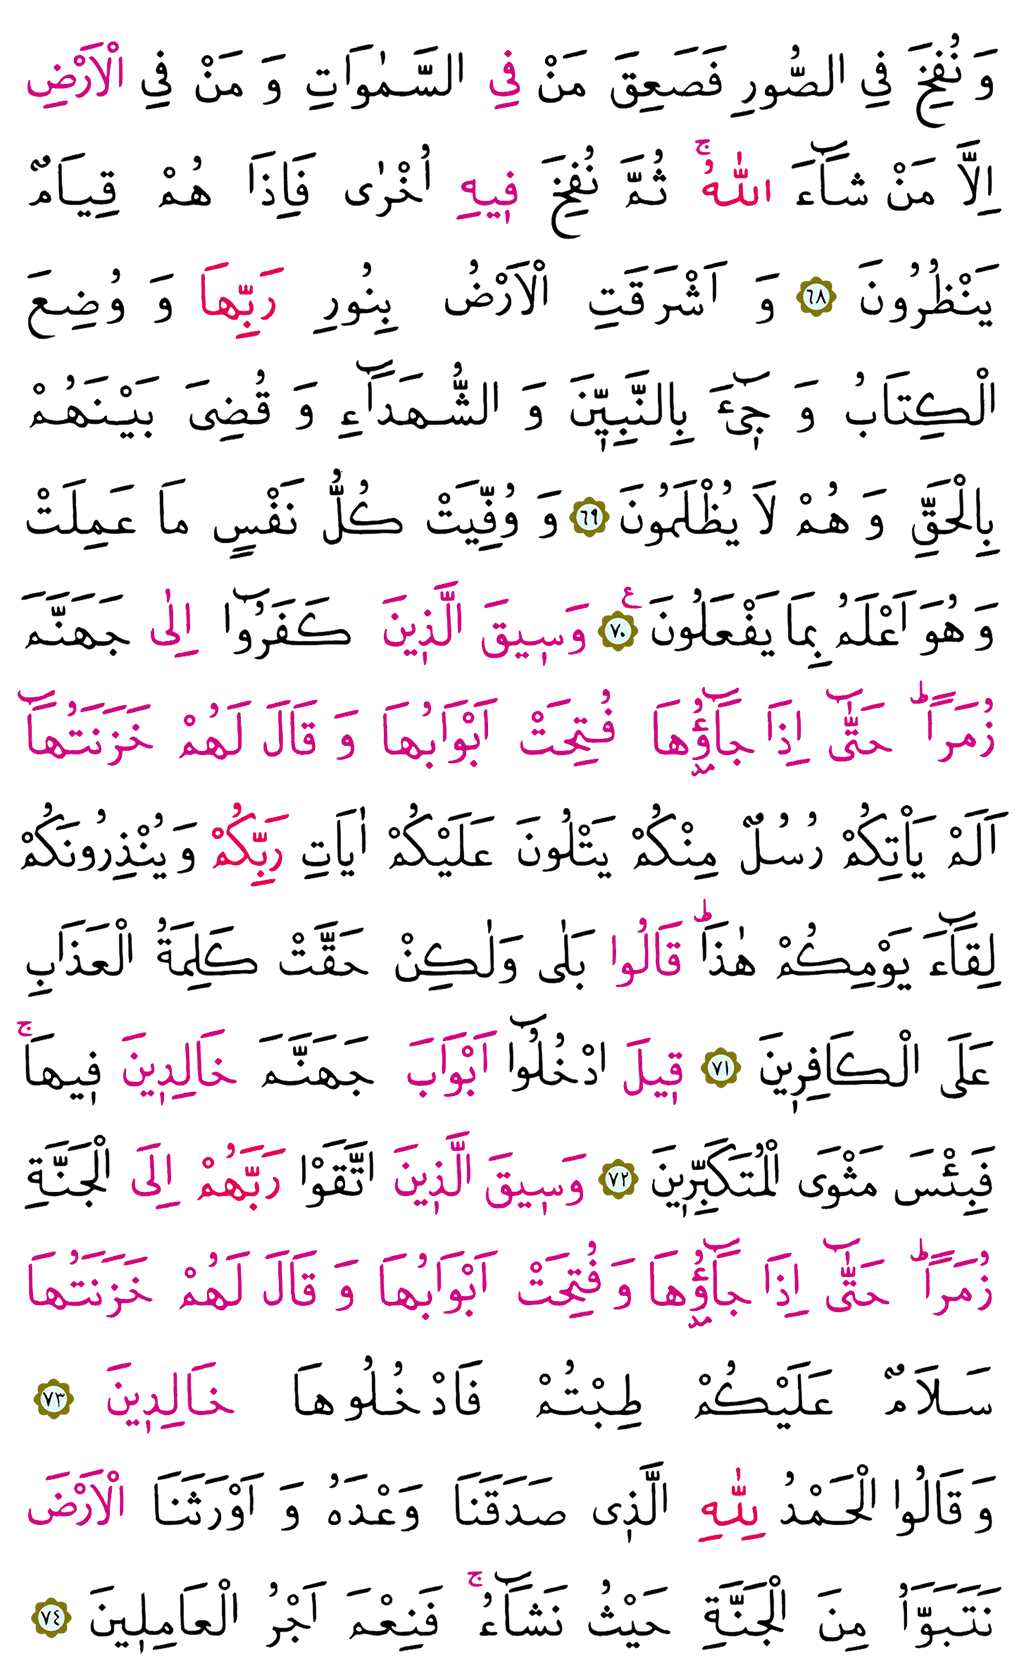 وَ نُفِخَ فِي الصُّورِ فَصَعِقَ مَنْ فِي السَّمٰوَاتِ وَ مَنْ فِي الْاَرْضِ
اِلَّا مَنْ شَٓاءَ اللّٰهُۚ ثُمَّ نُفِخَ ف۪يهِ اُخْرٰى فَاِذَا هُمْ قِيَامٌ
يَنْظُرُونَ ﴿٦٨﴾ وَ اَشْرَقَتِ الْاَرْضُ بِنُورِ رَبِّهَا وَ وُضِعَ
الْكِتَابُ وَ ج۪ٓيءَ بِالنَّبِيّ۪نَ وَ الشُّهَدَٓاءِ وَ قُضِيَ بَيْنَهُمْ
بِالْحَقِّ وَ هُمْ لَا يُظْلَمُونَ ﴿٦٩﴾ وَ وُفِّيَتْ كُلُّ نَفْسٍ مَا عَمِلَتْ
وَ هُوَ اَعْلَمُ بِمَا يَفْعَلُونَ ﴿٧٠﴾ع وَس۪يقَ الَّذ۪ينَ كَفَرُٓوا اِلٰى جَهَنَّمَ
زُمَرًاۜ حَتّٰٓى اِذَا جَٓاؤُ۫هَا فُتِحَتْ اَبْوَابُهَا وَ قَالَ لَهُمْ خَزَنَتُهَٓا
اَلَمْ يَاْتِكُمْ رُسُلٌ مِنْكُمْ يَتْلُونَ عَلَيْكُمْ اٰيَاتِ رَبِّكُمْ وَ يُنْذِرُونَكُمْ
لِقَٓاءَ يَوْمِكُمْ هٰذَاۜ قَالُوا بَلٰى وَلٰكِنْ حَقَّتْ كَلِمَةُ الْعَذَابِ
عَلَى الْكَافِر۪ينَ ﴿٧١﴾ ق۪يلَ ادْخُلُٓوا اَبْوَابَ جَهَنَّمَ خَالِد۪ينَ ف۪يهَاۚ
فَبِئْسَ مَثْوَى الْمُتَكَبِّر۪ينَ ﴿٧٢﴾ وَس۪يقَ الَّذ۪ينَ اتَّقَوْا رَبَّهُمْ اِلَى الْجَنَّةِ
زُمَرًاۜ حَتّٰٓى اِذَا جَٓاؤُ۫هَا وَ فُتِحَتْ اَبْوَابُهَا وَ قَالَ لَهُمْ خَزَنَتُهَا
سَلَامٌ عَلَيْكُمْ طِبْتُمْ فَادْخُلُوهَا خَالِد۪ينَ ﴿٧٣﴾
وَ قَالُوا الْحَمْدُ لِلّٰهِ الَّذ۪ى صَدَقَنَا وَعْدَهُ وَ اَوْرَثَنَا الْاَرْضَ
نَتَبَوَّاُ مِنَ الْجَنَّةِ حَيْثُ نَشَٓاءُۚ فَنِعْمَ اَجْرُ الْعَامِل۪ينَ ﴿٧٤﴾